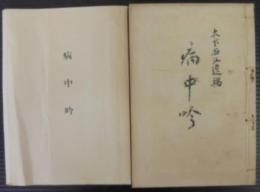 病中吟
木下㐂
遺稿
病中吟